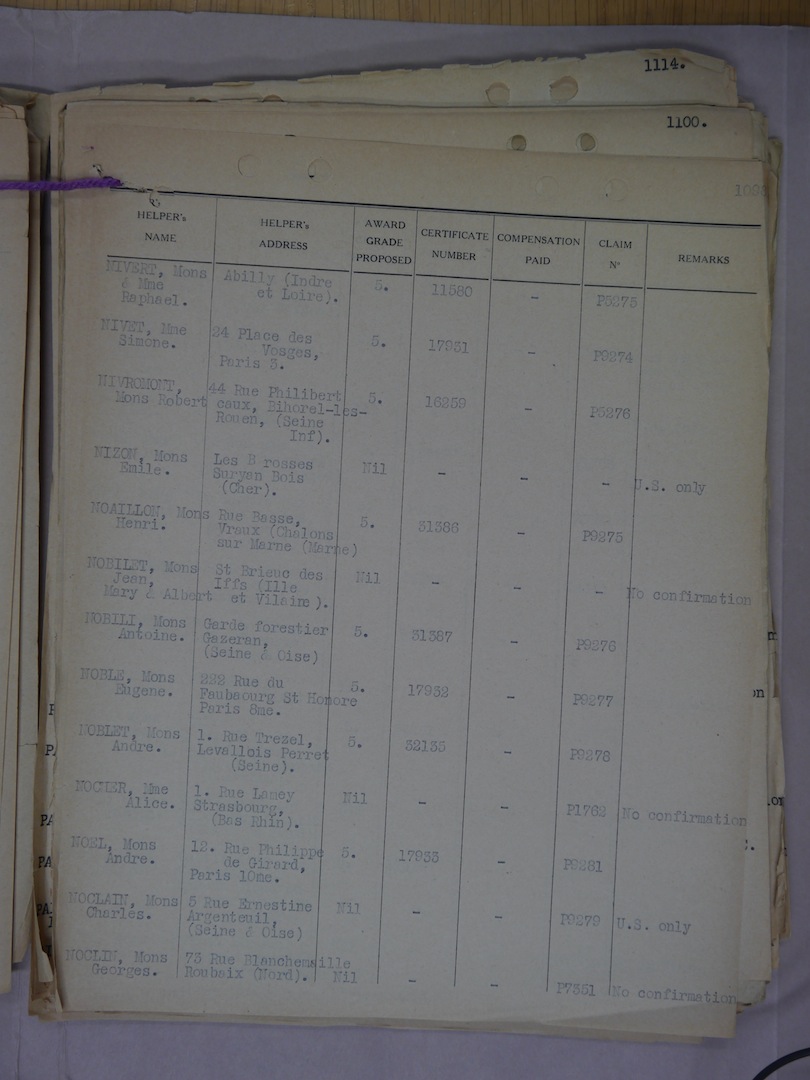 1114.
1100.
HELPER's NAME
HELPER's ADDRESS
AWARD GRADE PROPOSED
CERTIFICATE NUMBER
COMPENSATION PAID
CLAIM N°
REMARKS
NIVERT, Mons Abilly (Indre 5. 11580 - P5275
& Mme et Loire).
Raphael.
NIVET, Mme 24 Place des 5. 17931 - P9274
Simone. Vosges,
Paris 3.
NIVROMONT, 44 Rue Philibert 5. 16259 - P5276
Mons Robert caux, Bihorel-les-
Rouen, (Seine
Inf).
NIZON, Mons Les B rosses Nil - - - U.S. only
Emile. Suryen Bois
(Cher).
NOAILLON, Mons Rue Basse, 5. 31386 - P9275
Henri. Vraux (Chalons
sur Marne (Marne)
NOBILET, Mons St Brieuc des Nil - - - No confirmation
Jean, Iffs (Ille
Mary & Albert et Vilaine).
NOBILI, Mons Garde forestier 5. 31387 - P9276
Antoine. Gazeran,
(Seine & Oise)
NOBLE, Mons 222 Rue du 5. 17932 - P9277
Eugene. Faubaourg St Honore
Paris 8me.
NOBLET, Mons 1. Rue Trezel, 5. 32135 - P9278
Andre. Levallois Perret
(Seine).
Mme 1. Rue Lamey Nil - - P1762 No confirmation
Alice. Strasbourg,
(Bas Rhin).
NOEL, Mons 12. Rue Philippe 5. 17933 - P9281
Andre. de Girard,
Paris 10me.
NOCLAIN, Mons 5 Rue Ernestine Nil - - P9279 U.S. only
Charles. Argenteuil,
(Seine & Oise)
NOCLIN, Mons 73 Rue Blanchemaille Nil - - P7351 No confirmation
Georges. Roubaix (Nord).